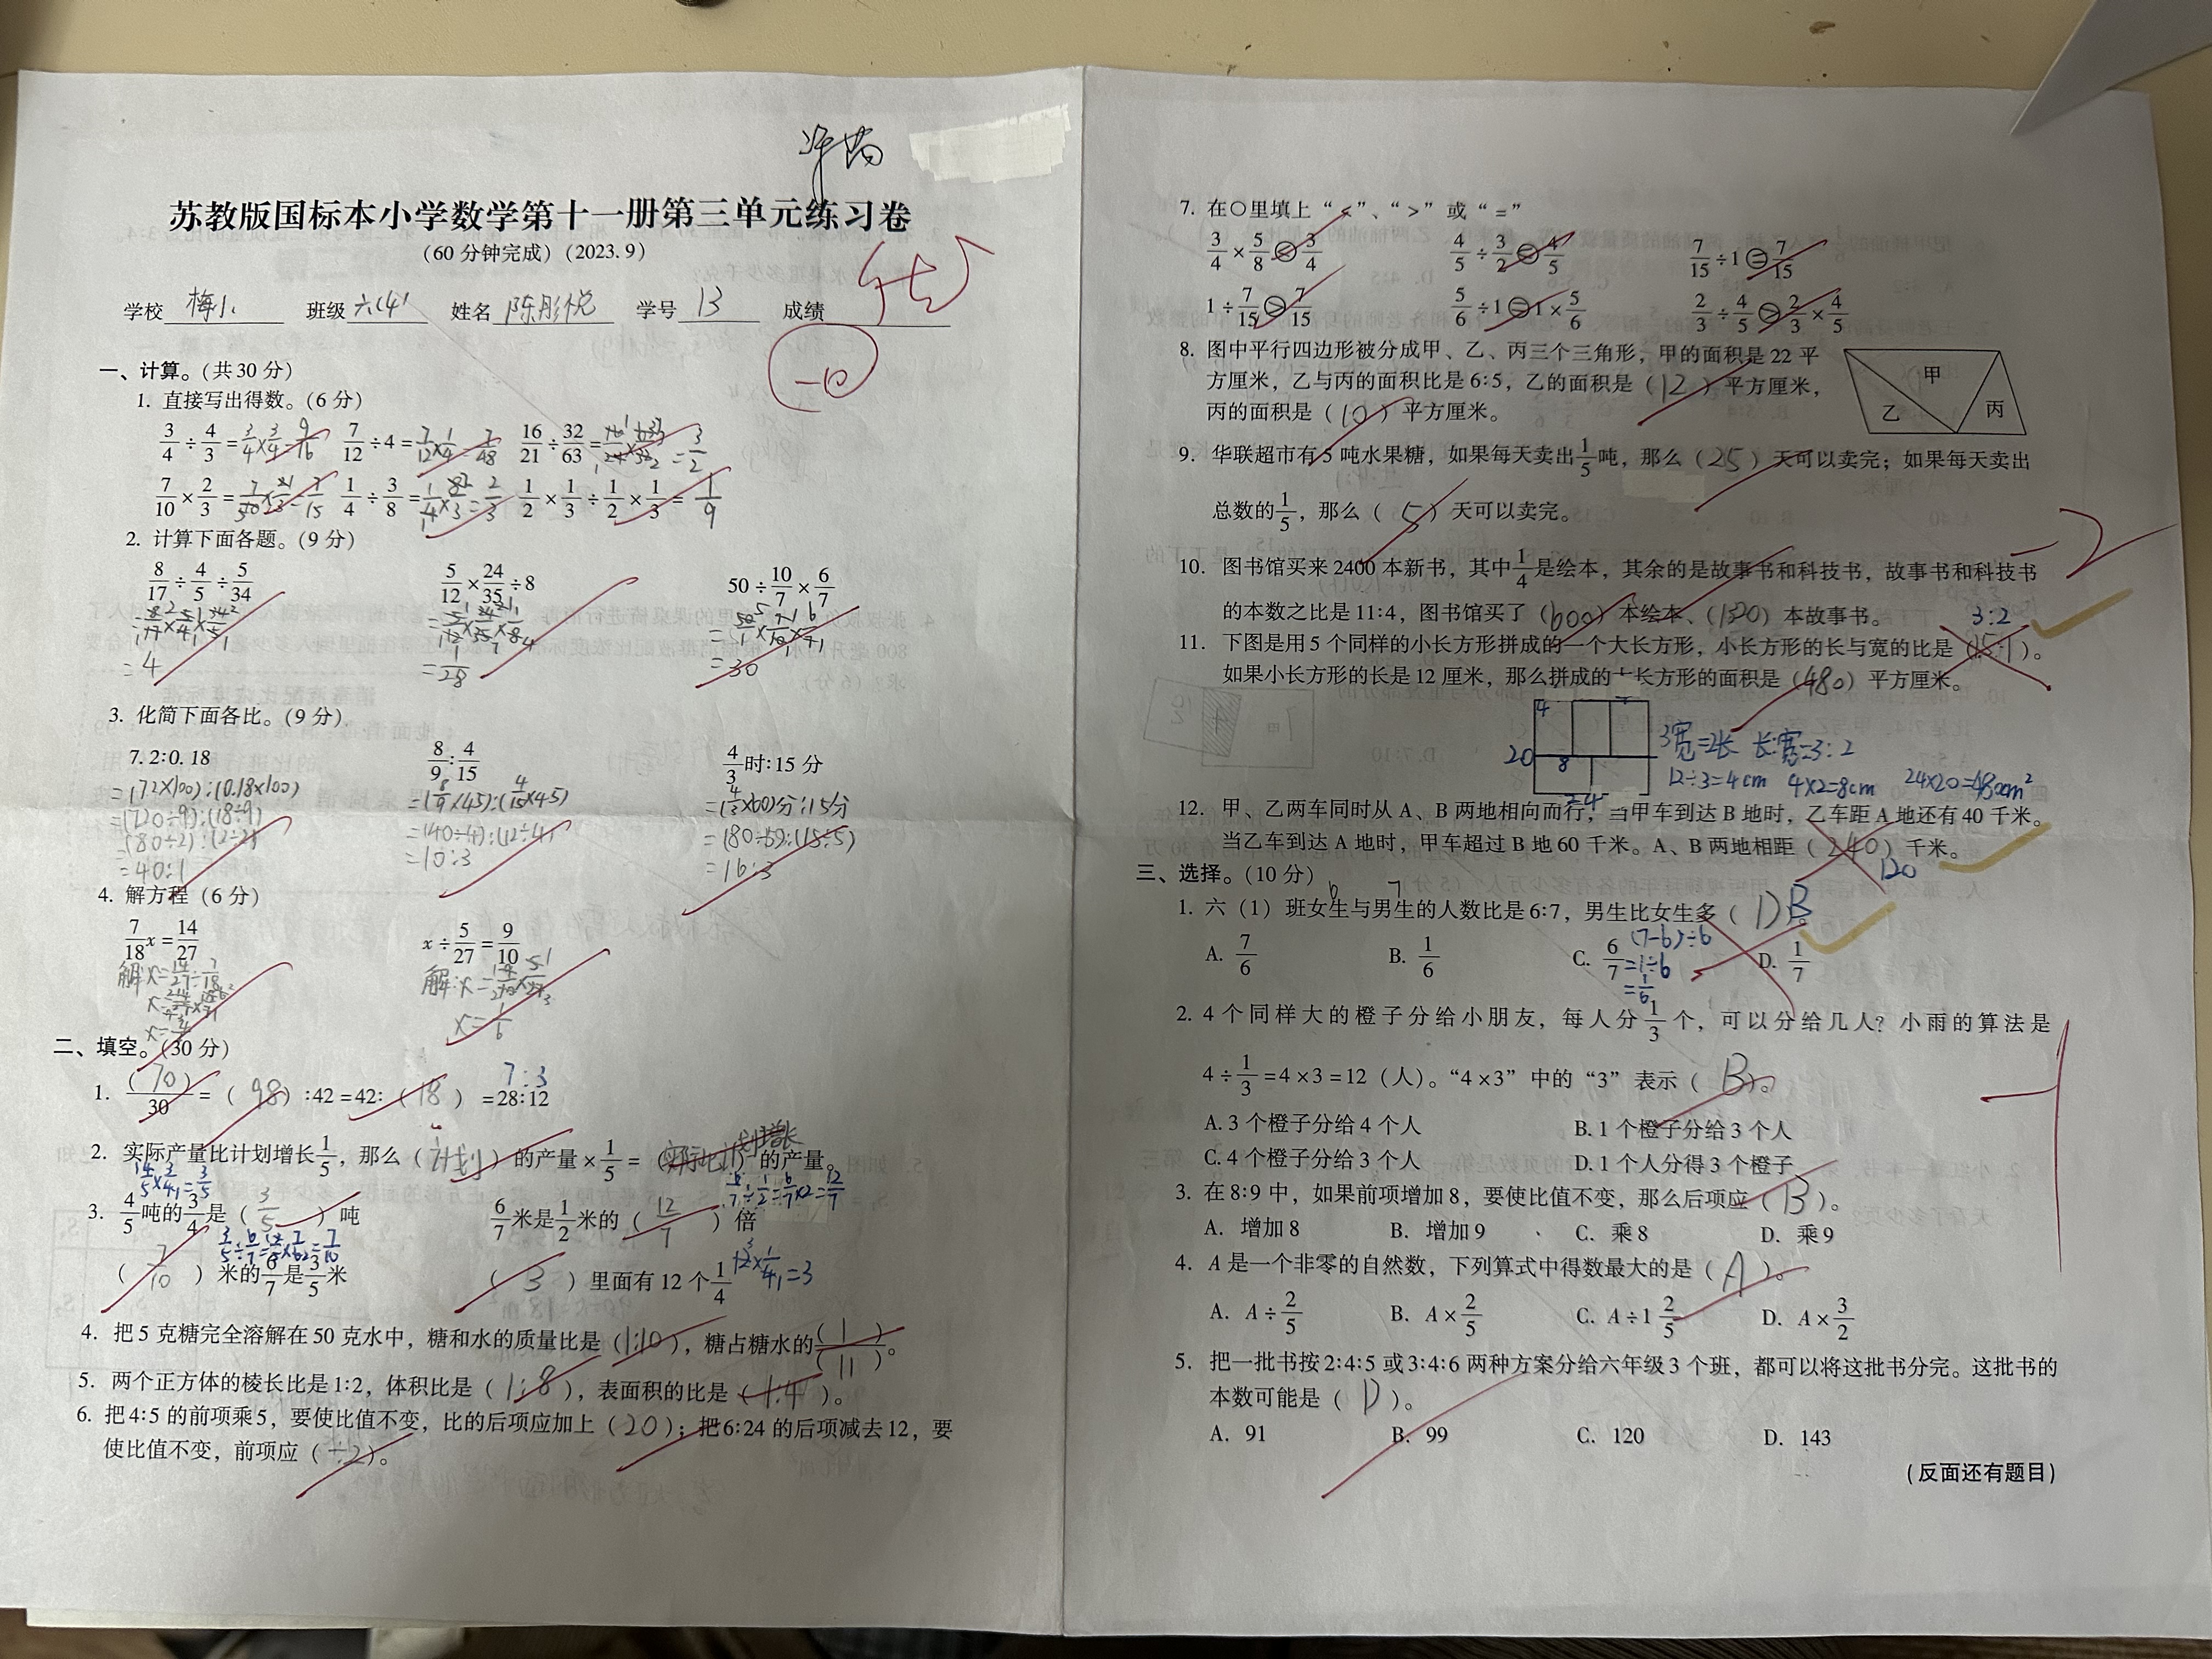 苏教版国标本小学数学第十一册第三单元练习卷
(60 分钟完成) (2023. 9)
学校 梅小 班级 六(4) 姓名 陈彤悦 学号 13 成绩
-10
一、计算。(共 30 分)
1. 直接写出得数。(6 分)
3/4 ÷ 4/3 = 3/4 × 3/4 = 9/16 7/12 ÷ 4 = 7/12 × 1/4 = 7/48 16/21 ÷ 32/63 = 3/2
7/10 × 2/3 = 7/15 1/4 ÷ 3/8 = 2/3 1/2 × 1/3 ÷ 1/2 × 1/3 = 1/9
2. 计算下面各题。(9 分)
8/17 ÷ 4/5 ÷ 5/34 5/12 × 24/35 ÷ 8 50 ÷ 10/7 × 6/7
= 8/17 × 5/4 × 34/5 = 5/12 × 24/35 × 1/8 = 50/1 × 7/10 × 6/7
= 4 = 1/28 = 30
3. 化简下面各比。(9 分)
7. 2∶0. 18 8/9 ∶ 4/15 4/3 时∶15 分
=(72×100):(0.18×100) =(8/9×45):(4/15×45) =(4/3×60)分:15分
=(720÷9):(18÷9) =(40÷4):(12÷4) =(80÷5):(15÷5)
=(80÷2):(2÷2) =10:3 =16:3
=40:1
4. 解方程 (6 分)
7/18 x = 14/27 x ÷ 5/27 = 9/10
解:x=14/27÷7/18 解:x=9/10×5/27
x=14/27×18/7 x=1/6
x=4/3
二、填空。(30 分)
7:3
1. (70)/30 = (98)∶42 = 42∶(18) = 28∶12
2. 实际产量比计划增长1/5,那么(计划)的产量×1/5=(计划增长)的产量。
4/5×3/4=3/5 6/7÷1/2=6/7×2=12/7
3. 4/5吨的3/4是(3/5)吨 6/7米是1/2米的(12/7)倍
3/5÷6/7=3/5×7/6=7/10 12×1/4=3
(7/10)米的6/7是3/5米 (3)里面有 12 个1/4
4. 把 5 克糖完全溶解在 50 克水中,糖和水的质量比是(1:10),糖占糖水的(1)/(11)。
5. 两个正方体的棱长比是 1∶2,体积比是(1:8),表面积的比是(1:4)。
6. 把 4∶5 的前项乘 5,要使比值不变,比的后项应加上(20);把 6∶24 的后项减去 12,要
使比值不变,前项应(÷2)。
7. 在○里填上“<”、“>”或“=”
3/4 × 5/8 < 3/4 4/5 ÷ 3/2 < 4/5 7/15 ÷ 1 = 7/15
1 ÷ 7/15 > 7/15 5/6 ÷ 1 = 1 × 5/6 2/3 ÷ 4/5 > 2/3 × 4/5
8. 图中平行四边形被分成甲、乙、丙三个三角形,甲的面积是 22 平
方厘米,乙与丙的面积比是 6∶5,乙的面积是(12)平方厘米,
丙的面积是(10)平方厘米。
甲
乙 丙
9. 华联超市有 5 吨水果糖,如果每天卖出1/5吨,那么(25)天可以卖完;如果每天卖出
总数的1/5,那么(5)天可以卖完。
-2
10. 图书馆买来 2400 本新书,其中1/4是绘本,其余的是故事书和科技书,故事书和科技书
的本数之比是 11∶4,图书馆买了(600)本绘本、(1320)本故事书。
3:2
11. 下图是用 5 个同样的小长方形拼成的一个大长方形,小长方形的长与宽的比是( )。
如果小长方形的长是 12 厘米,那么拼成的大长方形的面积是(480)平方厘米。
4
20 8
24
3宽=2长 长:宽=3:2
12÷3=4cm 4×2=8cm 24×20=480cm²
12. 甲、乙两车同时从 A、B 两地相向而行,当甲车到达 B 地时,乙车距 A 地还有 40 千米。
当乙车到达 A 地时,甲车超过 B 地 60 千米。A、B 两地相距(240)千米。
120
三、选择。(10 分)
6 7
1. 六(1)班女生与男生的人数比是 6∶7,男生比女生多(D)。B
A. 7/6 B. 1/6 C. 6/7 D. 1/7
(7-6)÷6
=1÷6
=1/6
2. 4 个同样大的橙子分给小朋友,每人分1/3个,可以分给几人?小雨的算法是
4÷1/3=4×3=12(人)。“4×3”中的“3”表示(B)。
-1
A. 3 个橙子分给 4 个人 B. 1 个橙子分给 3 个人
C. 4 个橙子分给 3 个人 D. 1 个人分得 3 个橙子
3. 在 8∶9 中,如果前项增加 8,要使比值不变,那么后项应(B)。
A. 增加 8 B. 增加 9 C. 乘 8 D. 乘 9
4. A 是一个非零的自然数,下列算式中得数最大的是(A)。
A. A÷2/5 B. A×2/5 C. A÷1 2/5 D. A×3/2
5. 把一批书按 2∶4∶5 或 3∶4∶6 两种方案分给六年级 3 个班,都可以将这批书分完。这批书的
本数可能是(D)。
A. 91 B. 99 C. 120 D. 143
(反面还有题目)